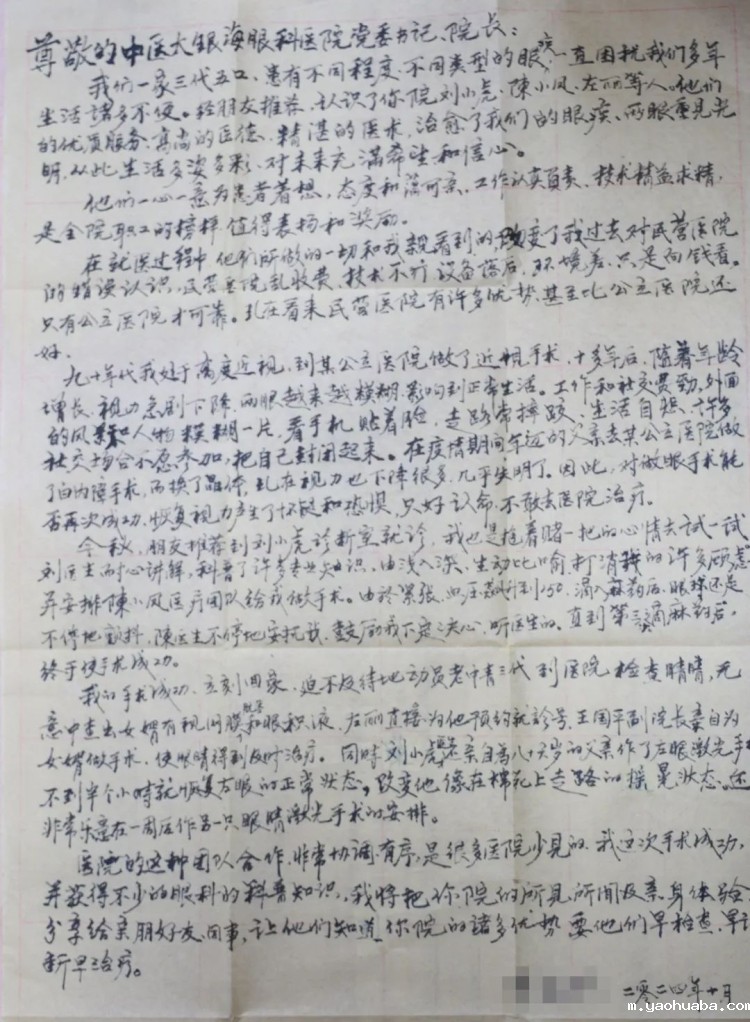 尊敬的中医大银海眼科医院党委书记、院长：
我们一家三代五口，患有不同程度、不同类型的眼疾，一直困扰我们多年
生活诸多不便。经朋友推荐，认识了你院刘小虎、陈小凤、左丽等人。他们
的优质服务、高尚的医德、精湛的医术，治愈了我们的眼疾，两眼重见光
明，从此生活多姿多彩，对未来充满希望和信心。
他们一心一意为患者着想，态度和蔼可亲，工作认真负责，技术精益求精，
是全院职工的榜样，值得表扬和奖励。
在就医过程中他们所做的一切和我亲看到的改变了我过去对民营医院
的错误认识，民营医院乱收费，技术不行，设备落后，环境差，只是向钱看。
只有公立医院才可靠。现在看来民营医院有许多优势，甚至比公立医院还
好。
九十年代我处于高度近视，到某公立医院做了近视手术，十多年后，随着年龄
增长，视力急剧下降，两眼越来越模糊，影响到正常生活。工作和社交费劲，外面
的风景和人物模糊一片，看手机贴着脸，走路常摔跤，生活自，许多
社交场合不愿参加，把自己封闭起来。在疫情期间年迈的父亲去某公立医院做
了白内障手术，而换了晶体，现在视力也下降很多，几乎失明了。因此，对做眼手术能
否再次成功，恢复视力产生了怀疑和恐惧，只好认命，不敢去医院治疗。
今秋，朋友推荐到刘小虎诊断室就诊，我也是抱着赌一把的心情去试一试
刘医生耐心讲解，科普了许多专业知识，由浅入深、生动比喻打消我的许多顾虑
并安排陈小凤医疗团队给我做手术。由于紧张，血压飙升到150，滴入麻药后，眼球还是
不停地颤抖，陈医生不停地安抚我，鼓励我下定决心，听医生的。直到第三滴麻药后，
终于使手术成功。
我的手术成功，立刻回家，迫不及待地动员老中青三代到医院检查眼睛，无
意中查出女婿有视网膜和眼积液，左丽直接为他预约就诊号，王国平副院长亲自为
女婿做手术，使眼睛得到及时治疗。同时刘小虎亲自为八十岁的父亲作了左眼激光手术
不到半个小时就恢复左眼的正常状态，改变他像在棉花上走路的摇晃状态。还
非常乐意在一周后作另一只眼睛激光手术的安排。
医院的这种团队合作，非常协调有序，是很多医院少见的。我这次手术成功，
并获得不少的眼科的科普知识，我将把你院的所见所闻及亲身体验
分享给亲朋好友、同事，让他们知道你院的诸多优势，要他们早检查、早诊
断早治疗。
二零二四年十月
m.yaohuaba.com